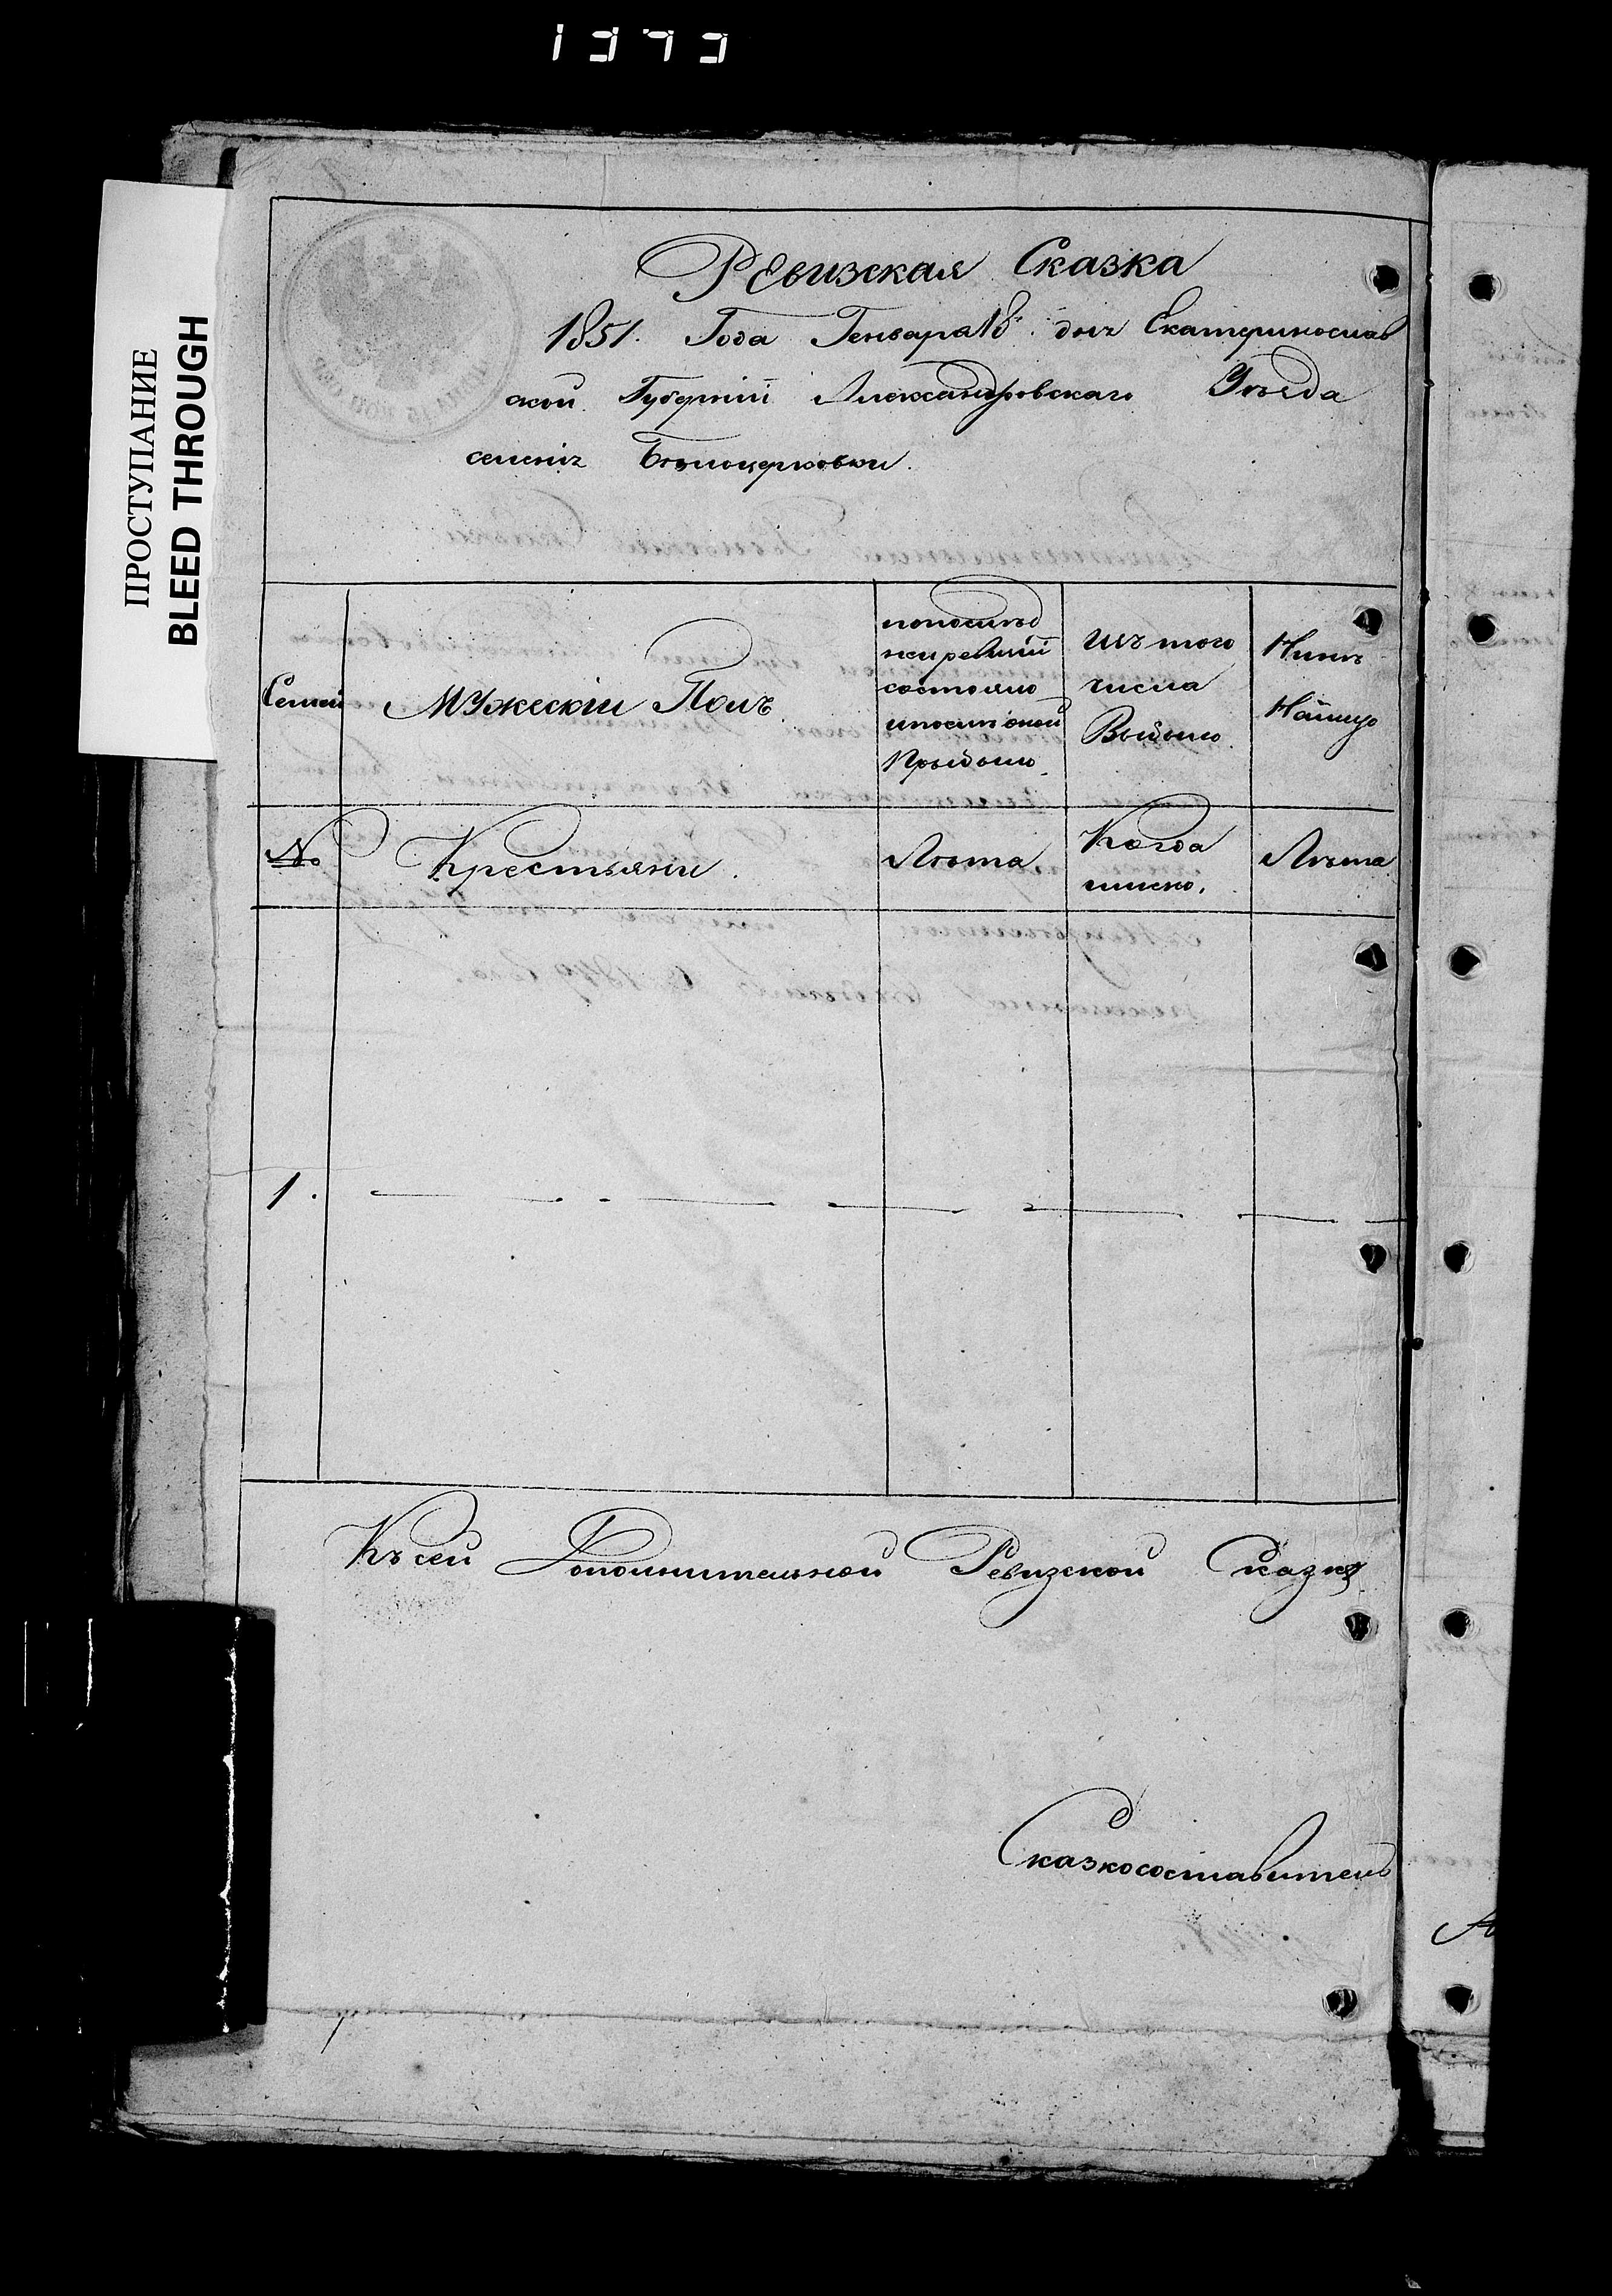 1373
ПРОСТУПАНИЕ
BLEED THROUGH
Ревизская Сказка
1851. Года Генваря 18 дня Екатеринослав
ской Губернїи Александровскаго Уѣзда
селенія Бѣлоцерковки.
Семьи
Мужескїй Полъ
попослѣд
ней ревизїй
состояло
ипослѣ оной
Прыбыло
Изъ того
числа
Выбыло
Нынѣ
Налицо
№
Крестьяни.
Лѣта
Когда
имено.
Лѣта
1.
Къ сей Дополнительной Ревизской Сказкѣ
Сказкосоставитель